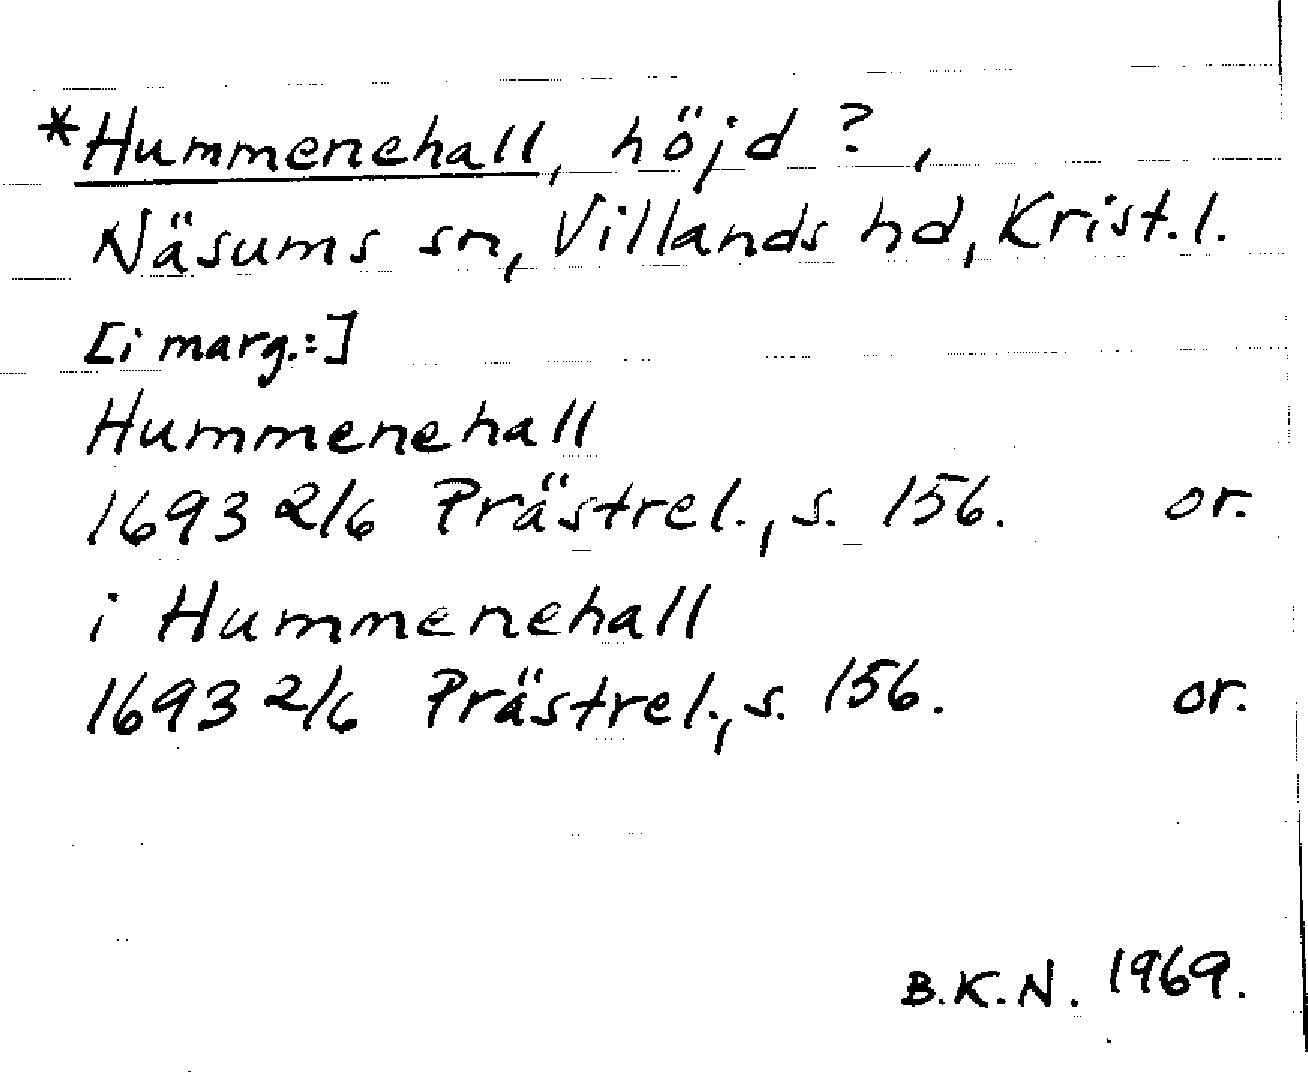 *Hummenehall, höjd ?,
Näsums sn, Villands hd, Krist. l.
[i marg.:]
Hummenehall
1693 2/6 Prästrel., s. 156. or.
i Hummenehall
1693 2/6 Prästrel., s. 156. or.
B.K.N. 1969.